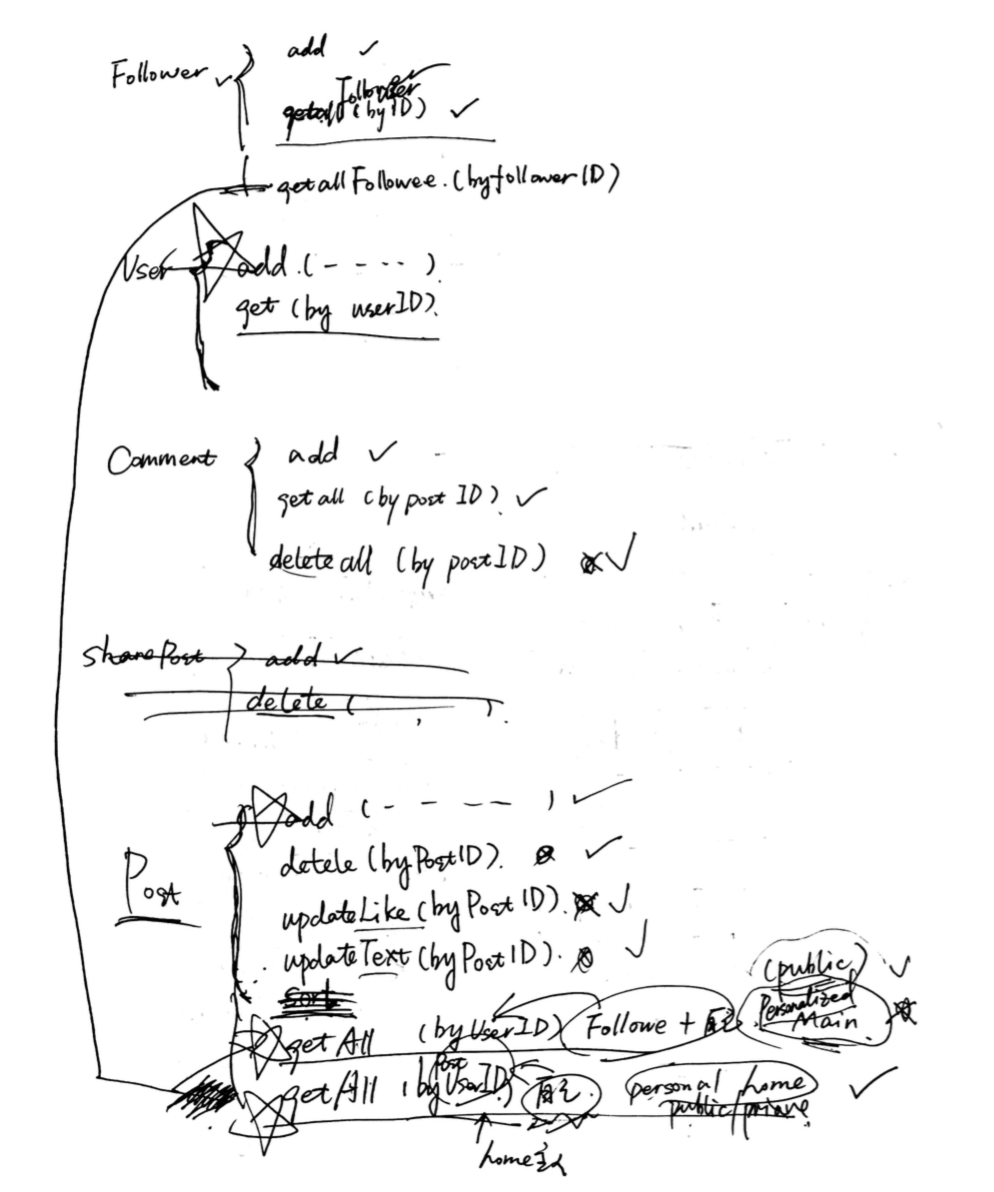 Follower
add
Follower
getall (by ID)
getall Followee. (by follower ID)
User
add. ( - - - - - )
get (by userID).
Comment
add
get all (by post ID)
delete all (by postID)
sharePost
add
delete ( , ).
Post
add ( - - - - )
detele (by PostID).
updateLike (by Post ID).
updateText (by PostID).
sort
(public)
get All (by UserID) Followe + 自己 Personalized Main
Post
get All (by UserID) 自己. personal home
public/
home